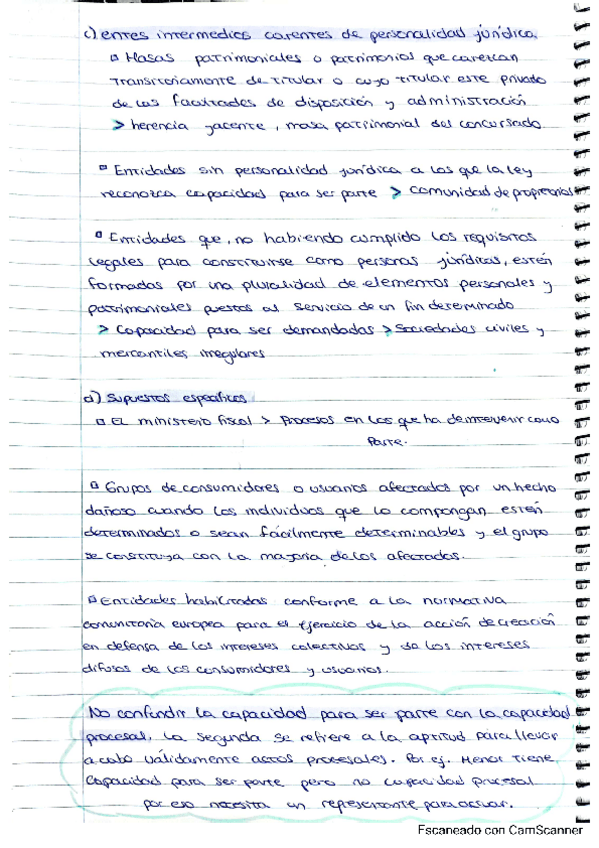 c) entes intermedios carentes de personalidad jurídica.
▫ Masas patrimoniales o patrimonios que carezcan
transitoriamente de titular o cuyo titular esté privado
de las facultades de disposición y administración
> herencia yacente, masa patrimonial del concursado
▫ Entidades sin personalidad jurídica a las que la ley
reconozca capacidad para ser parte > comunidad de propietarios
▫ Entidades que, no habiendo cumplido los requisitos
legales para constituirse como personas jurídicas, estén
formadas por una pluralidad de elementos personales y
patrimoniales puestos al servicio de un fin determinado
> Capacidad para ser demandadas > Sociedades civiles y
mercantiles irregulares
d) Supuestos específicos
▫ EL ministerio fiscal > procesos en los que ha de intervenir como
parte.
▫ Grupos de consumidores o usuarios afectados por un hecho
dañoso cuando los individuos que lo compongan estén
determinados o sean fácilmente determinables y el grupo
se constituya con la mayoría de los afectados.
▫ Entidades habilitadas conforme a la normativa
comunitaria europea para el ejercicio de la acción de cesación
en defensa de los intereses colectivos y de los intereses
difusos de los consumidores y usuarios.
No confundir la capacidad para ser parte con la capacidad
procesal, la segunda se refiere a la aptitud para llevar
a cabo válidamente actos procesales. Por ej. Menor tiene
capacidad para ser parte pero no capacidad procesal
por eso necesita un representante para actuar.
Escaneado con CamScanner